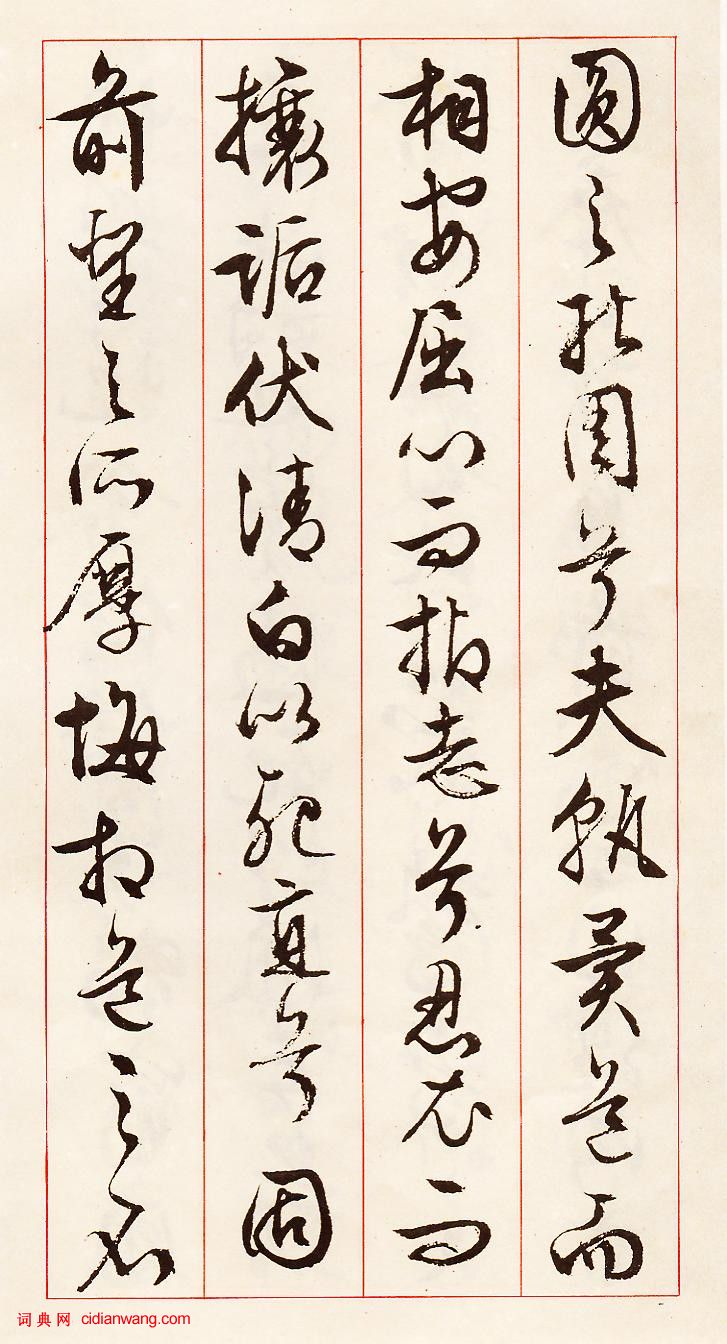 圓之能周兮夫孰異道而
相安屈心而抑志兮忍尤而
攘詬伏清白以死直兮固
前聖之所厚悔相道之不
词典网 cidianwang.com